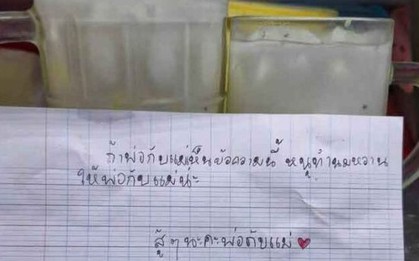 ถ้าพ่อกับแม่เห็นข้อความนี้ หนูทำนมหวาน
ให้พ่อกับแม่น่ะ
สู้ๆนะคะพ่อกับแม่ ♥